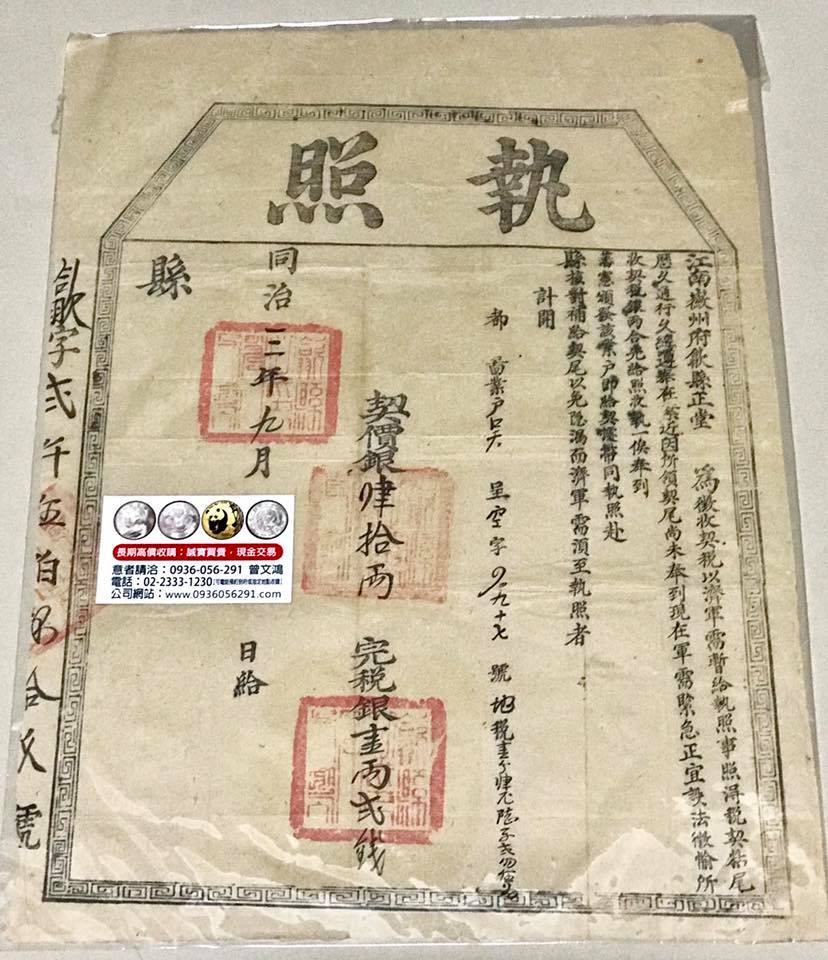 執照
江南徽州府歙縣正堂　為徵收契稅以濟軍需暫給執照事照得稅契粘尾
歷久通行久經遵奉在案近因所領契尾尚未奉到現在軍需緊急正宜設法徵輸所
收契稅銀兩合先給照收執一俟奉到
藩憲頒發該業戶即給契護帶同執照赴
縣核對補給契尾以免隱漏而濟軍需須至執照者
計開
都　啚業戶　呈　字　九十七　號　地稅
契價銀肆拾兩　完稅銀壹兩弍錢
同治三年九月　日給
縣
歙字弍千五伯　拾　號
長期高價收購：誠實買賣，現金交易
意者請洽：0936-056-291 曾文鴻
電話：02-2333-1230
公司網站：www.0936056291.com